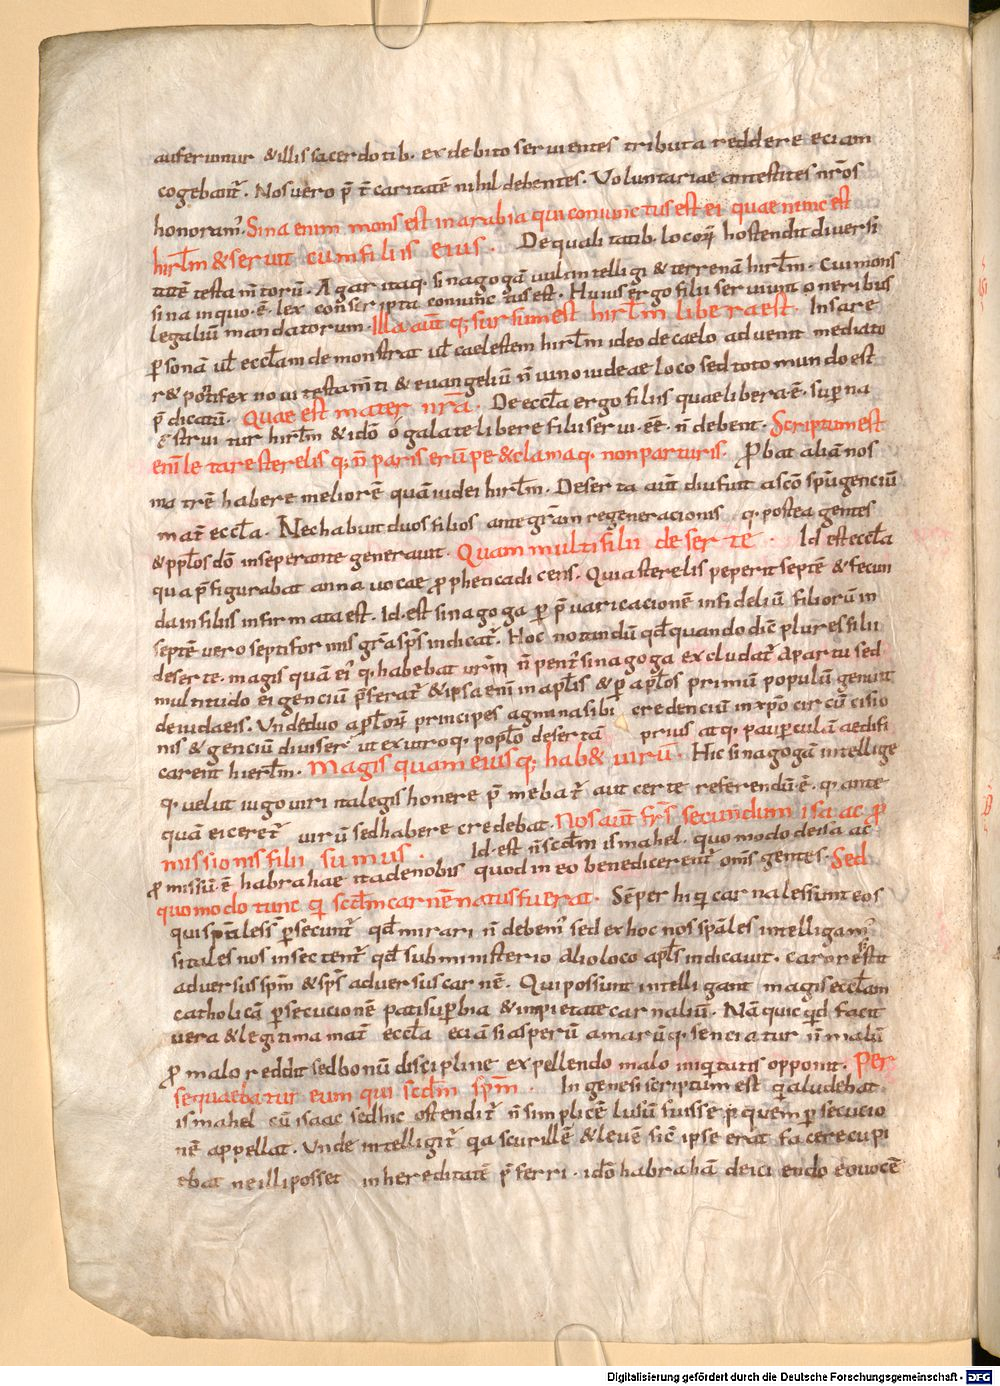 auferuntur &illis sacerdotib. ex debito seruientes tributa reddere eciam
cogebant̄. Nos uero p̄ t̄ caritatē nihil debentes. Voluntariae antestites nr̄os
honoram̄. Sina enim mons est in arabia qui coniunctus est ei quae nunc est
hirl̄m & seruit cum filiis eius. De qualitatib. locoꝝ hostendit diuersi
tatē testam̄torū. Agar itaq. sinagogā uul intelligi & terrenā hirl̄m. Cui mons
sina in quo. ē. lex conscripta coniunctus est. Huius ergo filii seruiunt oneribus
legaliū mandatorum. Illa aūt q; sursum est hirl̄m libera est. In sare
ꝑsonā ul̄ eccl̄am demonstrat ul̄ caelestem hirl̄m ideo de caelo aduenit mediato
r & pontifex noui testam̄ti & euangeliū n̄ in uno iudeae loco sed toto mundo est
p̄dicatū. Quae est mater nr̄a. De eccl̄a ergo filiis quae libera. ē. superna
estruitur hirl̄m & idō ó galate libere filii serui. eē. n̄ debent. Scriptum est
enī letare sterelis q; n̄ paris erūpe & clama q. non parturis. Probat aliā nos
matrē habere meliorē quā iudei hirl̄m. Deserta aūt diu fuit ascō sp̄u genciū
mat̄ eccl̄a. Nec habuit duos filios ante gr̄am regeneracionis q. postea gentes
& ppl̄os dō inseperante generauit. Quam multi filii deserte. Id est eccl̄a
qua p̄figurabat anna uocae ꝓphetica dicens. Quia sterelis peperit septē & fecun
da in filiis infirmata est. Id. est sinagoga ꝑ p̄uaricacionē infideliū filiorū in
septē uero septiformis gr̄a sp̄s indicat̄. Hoc notandū qd̄ quando dic̄ plures filii
deserte. magis quā ei᷒ q. habebat uir̄m n̄ penit᷒ sinagoga excludat̄ a partu sed
multitudo ei genciū p̄ferat̄ & ipsa enī in apl̄is & ꝑ apl̄os primū populū genuit
de iudaeis. Unde duo apl̄oꝝ principes agmina sibi credenciū in xp̄o circūcisio
nis & genciū diuiser̄ ut ex utroq. popl̄o deserta prius atq. pauꝑculā aedifi
carent hierl̄m. Magis quam eius q; hab& uirū. Hic sinagogā intellige
q. uelut iugo uiri ita legis honere p̄mebat̄ aut certe referendū ē. q. ante
quā eiceret̄ uirū sed habere credebat. Nos aūt fr̄s secundum isaac ꝓ
missionis filii sumus. Id. est n̄ scd̄m ismahel. quomodo de isaac
ꝓmissū. ē habrahae ita de nobis quod in eo benedicerent̄ om̄s gentes. Sed
quomodo tunc q̄ scd̄m carnē natus fuerat. Sēper hi q̄ carnales sunt eos
qui sp̄tales s̄ ꝑsecunt̄ qd̄ mirari n̄ debem᷒ sed ex hoc nos sp̄ales intelligam᷒
si tales nos insectent̄ qd̄ sub ministerio alio loco apl̄s indicauit. caro restit
aduersus sp̄m & sp̄s aduersus carnē. Qui possunt intelligant magis eccl̄am
catholicā ꝑsecucionē pati suꝑbia & impietate carnaliū. Nā quicqd̄ facit
uera & legitima mat̄ eccl̄a eciā si asperū amarūq. senciatur n̄ malū
ꝓ malo reddit sed bonū discipline expellendo malo iniquitatis opponit. Per
sequaebatur eum qui scd̄m sp̄m. In genesi scriptum est q̄ aludebat.
ismahel cū isaac sed hic ostendit̄ n̄ simplicē lusū fuisse p̄ quem ꝑsecucio
nē appellat. Unde intelligit̄ q̄a scurillē & leuē sic̄ ipse erat facere cupi
ebat ne illi posset in hereditatē p̄ferri. idō habrahā deici eudo euocē
Digitalisierung gefördert durch die Deutsche Forschungsgemeinschaft - DFG